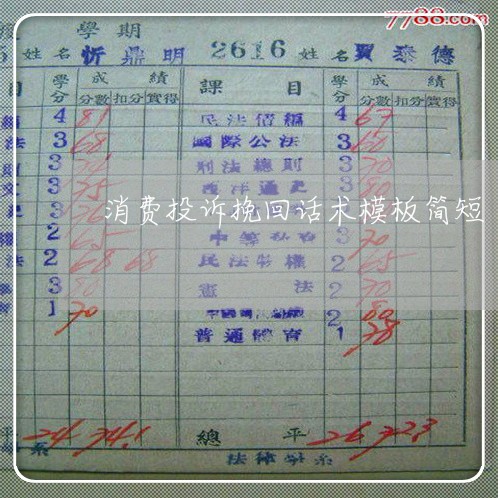 7788.com
學期
5 姓名 忻鼎明 2616 姓名 賈泰德
目 學分 成績 課目 學分 成績
分數 扣分 實得 分數 扣分 實得
4 81 民法債編 4 67
法 3 68 國際公法 3 60
3 刑法總則 3 70
3 75 西洋通史 3 80
消费投诉挽回话术模板简短
2 65 3 70
法 2 68 68 民法物權 2 65
3 80 憲法 2 70
1 70 2 80
普通體育 1 78
平 24 74.1 總平 26 72.3
系 法律學系